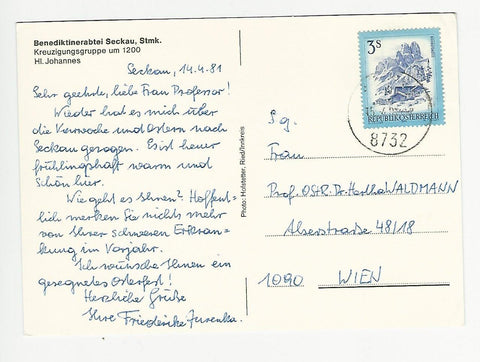 Benediktinerabtei Seckau, Stmk.
Kreuzigungsgruppe um 1200
Hl. Johannes
Seckau, 14.4.81
Sehr geehrte, liebe Frau Professor!
Wieder hat es mich über
die Karwoche und Ostern nach
Seckau gezogen. Es ist heuer
frühlingshaft warm und
schön hier.
Wie geht es Ihnen? Hoffent-
lich merken Sie nichts mehr
von Ihrer schweren Erkran-
kung im Vorjahr.
Ich wünsche Ihnen ein
gesegnetes Osterfest!
Herzliche Grüße
Ihre Friederike
Photo: Hofstetter, Ried/Innkreis
3 S
REPUBLIK ÖSTERREICH
8732
Sg.
Frau
Prof. OStR. Dr. Hertha WALDMANN
Alserstraße 48/18
1090 WIEN